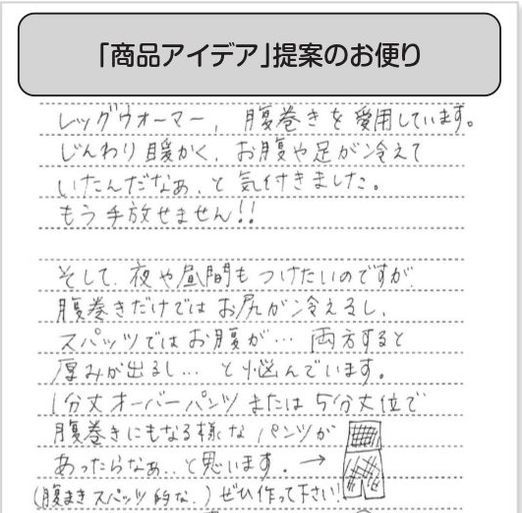 「商品アイデア」提案のお便り
レッグウォーマー, 腹巻きを愛用しています。
じんわり暖かく、お腹や足が冷えて
いたんだなぁ、と気付きました。
もう手放せません!!
そして、夜や昼間もつけたいのですが
腹巻きだけではお尻が冷えるし、
スパッツではお腹が… 両方すると
厚みが出るし… と悩んでいます。
1分丈オーバーパンツまたは5分丈位で
腹巻きにもなる様なパンツが
あったらなぁ..と思います. →
(腹まきスパッツ的な..) ぜひ作って下さい!